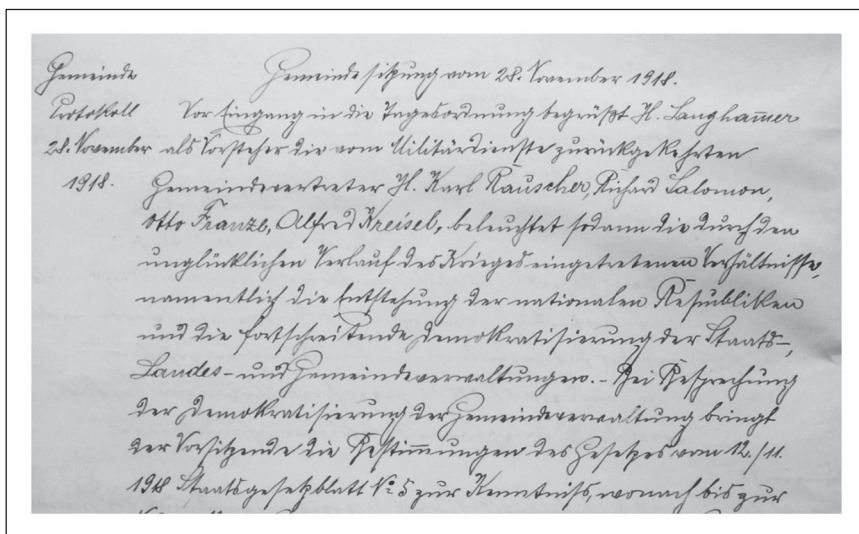 Gemeinde Gemeindesitzung vom 28. November 1918.
Protokoll Vor Eingang in die Tagesordnung begrüßt H. Langham̅er
28. November als Vorsteher die vom Militärdienste zurückgekehrten
1918. Gemeindevertreter H. Karl Rauscher, Richard Salomon,
Otto Franzl, Alfred Kreisel, beleuchtet sodann die durch den
unglücklichen Verlauf des Krieges eingetretenen Verhältnisse,
namentlich die Entstehung der nationalen Republiken
und die fortschreitende Demokratisierung der Staats-,
Landes- und Gemeindeverwaltungen. - Bei Besprechung
der Demokratisierung der Gemeindeverwaltung bringt
der Vorsitzende die Bestim̅ungen des Gesetzes vom 12./11.
1918 Staatsgesetzblatt No 5 zur Kenntniss, wonach bis zur